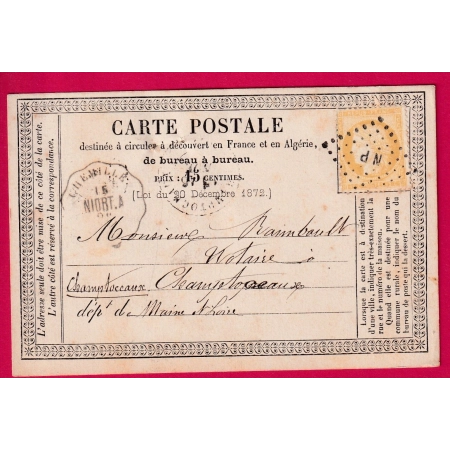 CARTE POSTALE
destinée à circuler à découvert en France et en Algérie,
de bureau à bureau.
PRIX : 15 CENTIMES.
[Loi du 20 Décembre 1872.]
L'adresse seule doit être mise de ce côté de la carte.
L'autre côté est réservé à la correspondance.
CHEMILLÉ
15
NIORT.A
NP
Monsieur Raimbault
Notaire à
Champtoceaux Champtoceaux
dépt de Maine & Loire
Lorsque la carte est à destination
d'une ville, indiquer très-exactement la
rue et le numéro de la maison.
Quand elle est destinée pour une
commune rurale, indiquer le nom du
bureau de poste qui la dessert.